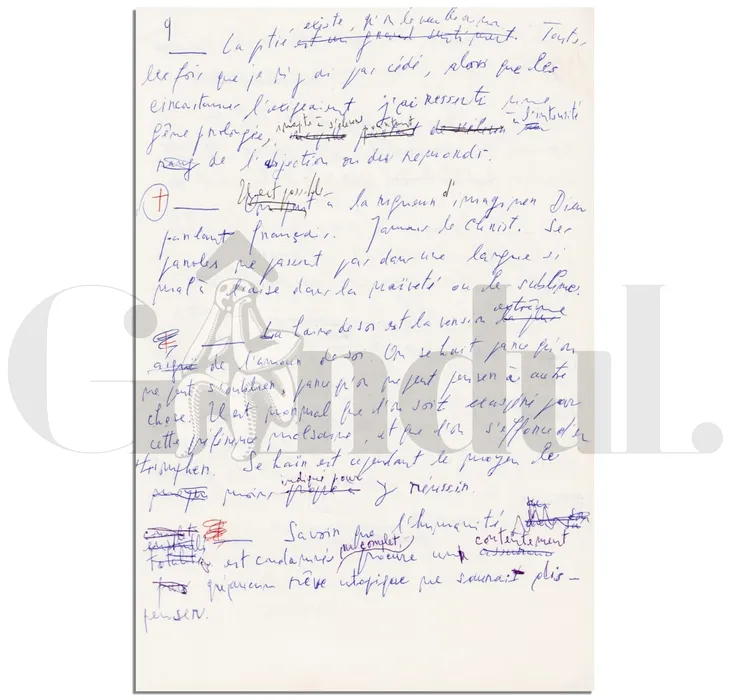 9
existe, qu'on le veuille ou non
La pitié est un grand sentiment. Toutes
les fois que je n'y ai pas cédé, alors que les
circonstances l'exigeaient, j'ai ressenti une
gêne prolongée, à l'intensité
rang de l'abjection ou du remords.
Il est possible
On peut à la rigueur d'imaginer Dieu
parlant français. Jamais le Christ. Ses
paroles ne passent pas dans une langue si
mal à l'aise dans la naïveté ou le sublime.
extrême
La haine de soi est la version la plus
aiguë de l'amour de soi. On se hait parce qu'on
ne peut s'oublier, parce qu'on ne peut penser à autre
chose. Il est normal que l'on soit exaspéré par
cette préférence malsaine, et que l'on s'efforce d'en
triompher. Se haïr est cependant le moyen le
indiqué pour
moins y réussir.
Savoir que l'humanité
complet contentement
est condamnée procure un
qu'aucun rêve utopique ne saurait dis-
penser.
Gondul.